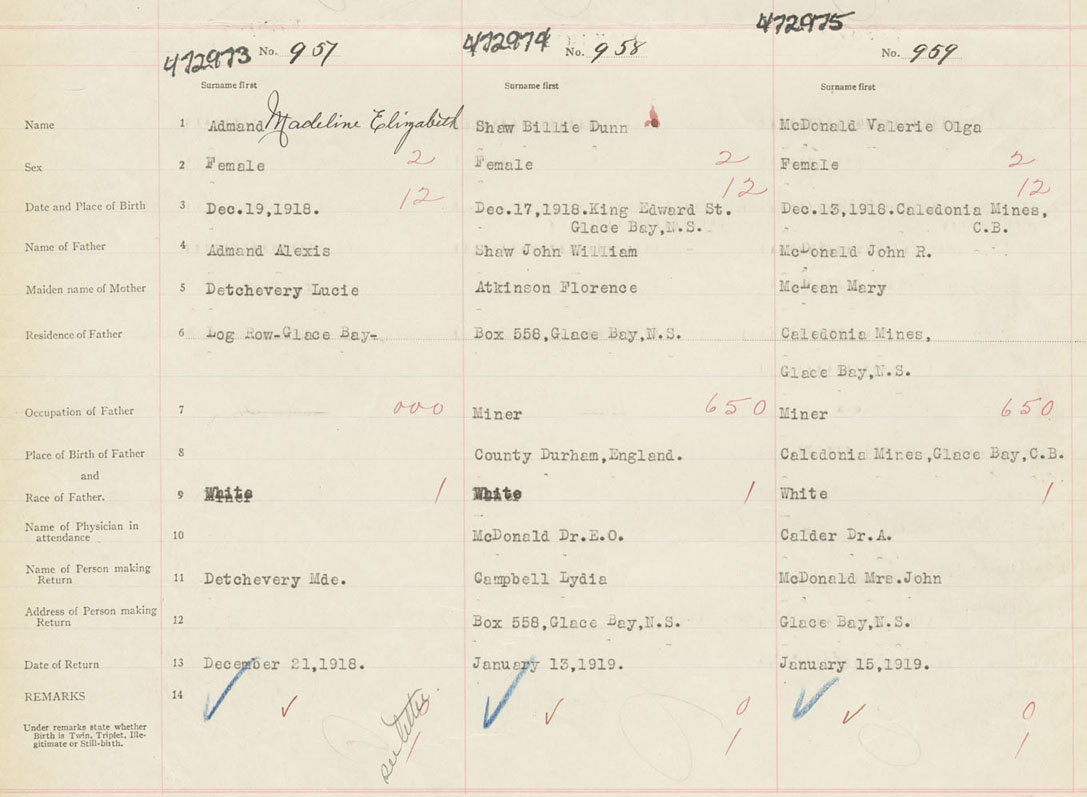 472973 No. 957 472974 No. 958 472975 No. 959
Surname first Surname first Surname first
Name 1 Admand Madeline Elizabeth Shaw Billie Dunn McDonald Valerie Olga
Sex 2 Female 2 Female 2 Female 2
12 12 12
Date and Place of Birth 3 Dec.19,1918. Dec.17,1918.King Edward St. Dec.13,1918.Caledonia Mines,
Glace Bay,N.S. C.B.
Name of Father 4 Admand Alexis Shaw John William McDonald John R.
Maiden name of Mother 5 Detchevery Lucie Atkinson Florence McLean Mary
Residence of Father 6 Log Row-Glace Bay- Box 558,Glace Bay,N.S. Caledonia Mines,
Glace Bay,N.S.
Occupation of Father 7 000 Miner 650 Miner 650
Place of Birth of Father 8 County Durham,England. Caledonia Mines,Glace Bay,C.B.
and
Race of Father. 9 White 1 White 1 White 1
Name of Physician in
attendance 10 McDonald Dr.E.O. Calder Dr.A.
Name of Person making
Return 11 Detchevery Mde. Campbell Lydia McDonald Mrs.John
Address of Person making
Return 12 Box 558,Glace Bay,N.S. Glace Bay,N.S.
Date of Return 13 December 21,1918. January 13,1919. January 15,1919.
REMARKS 14
see letter 0 0 0
Under remarks state whether
Birth is Twin, Triplet, Ille-
gitimate or Still-birth.
1 1 1